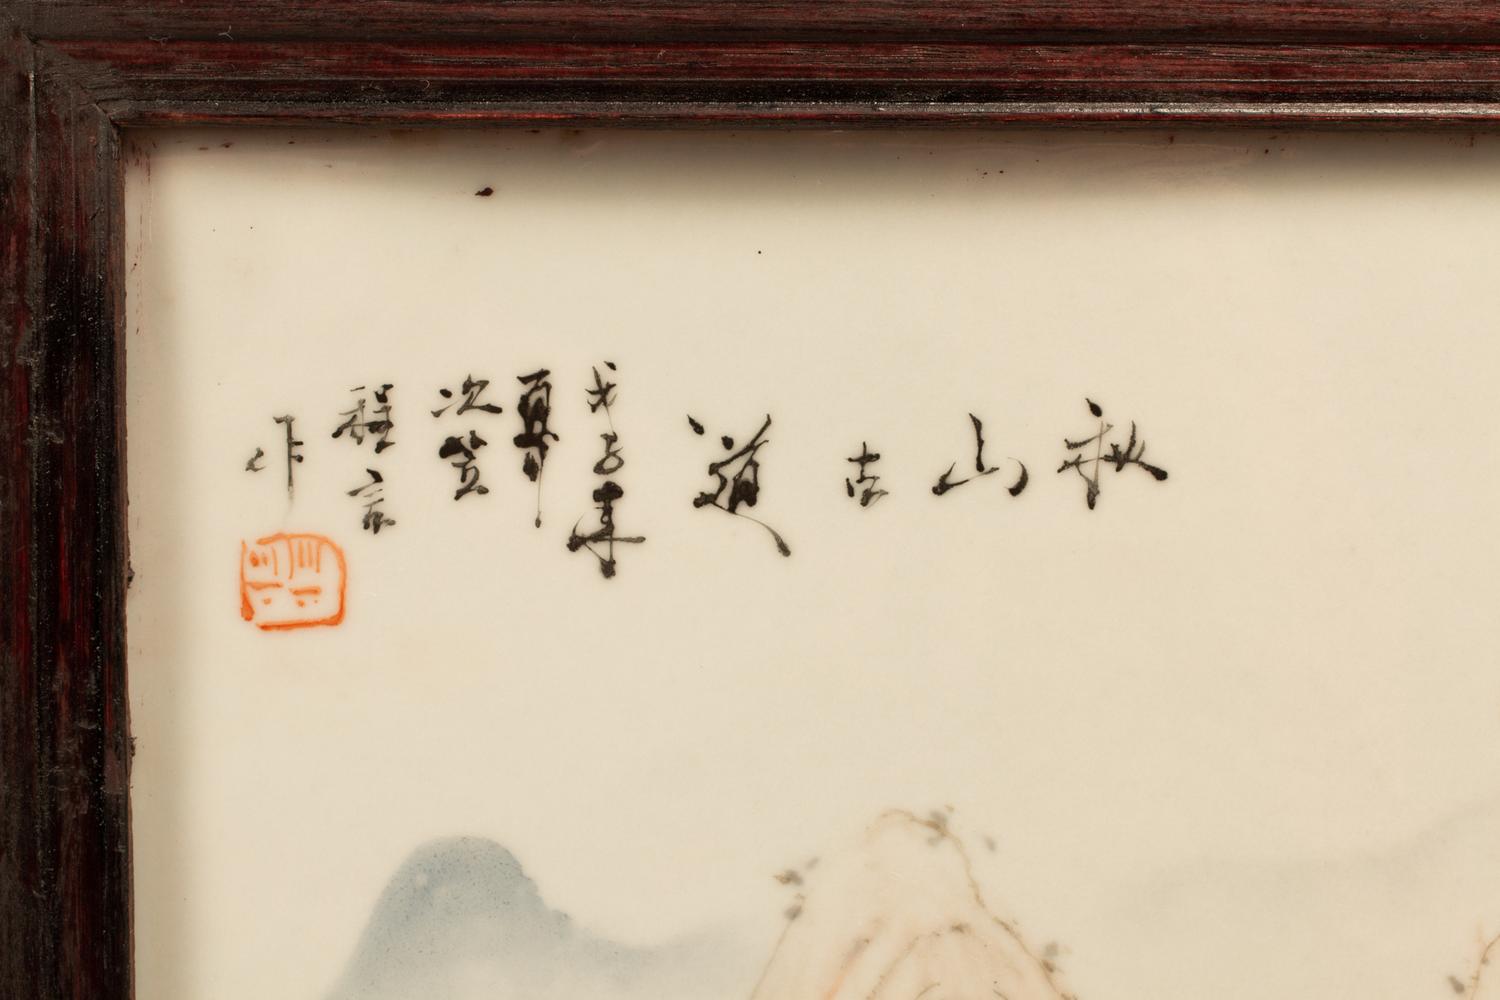 秋山古道
戊子年
夏
次笠
程言
作